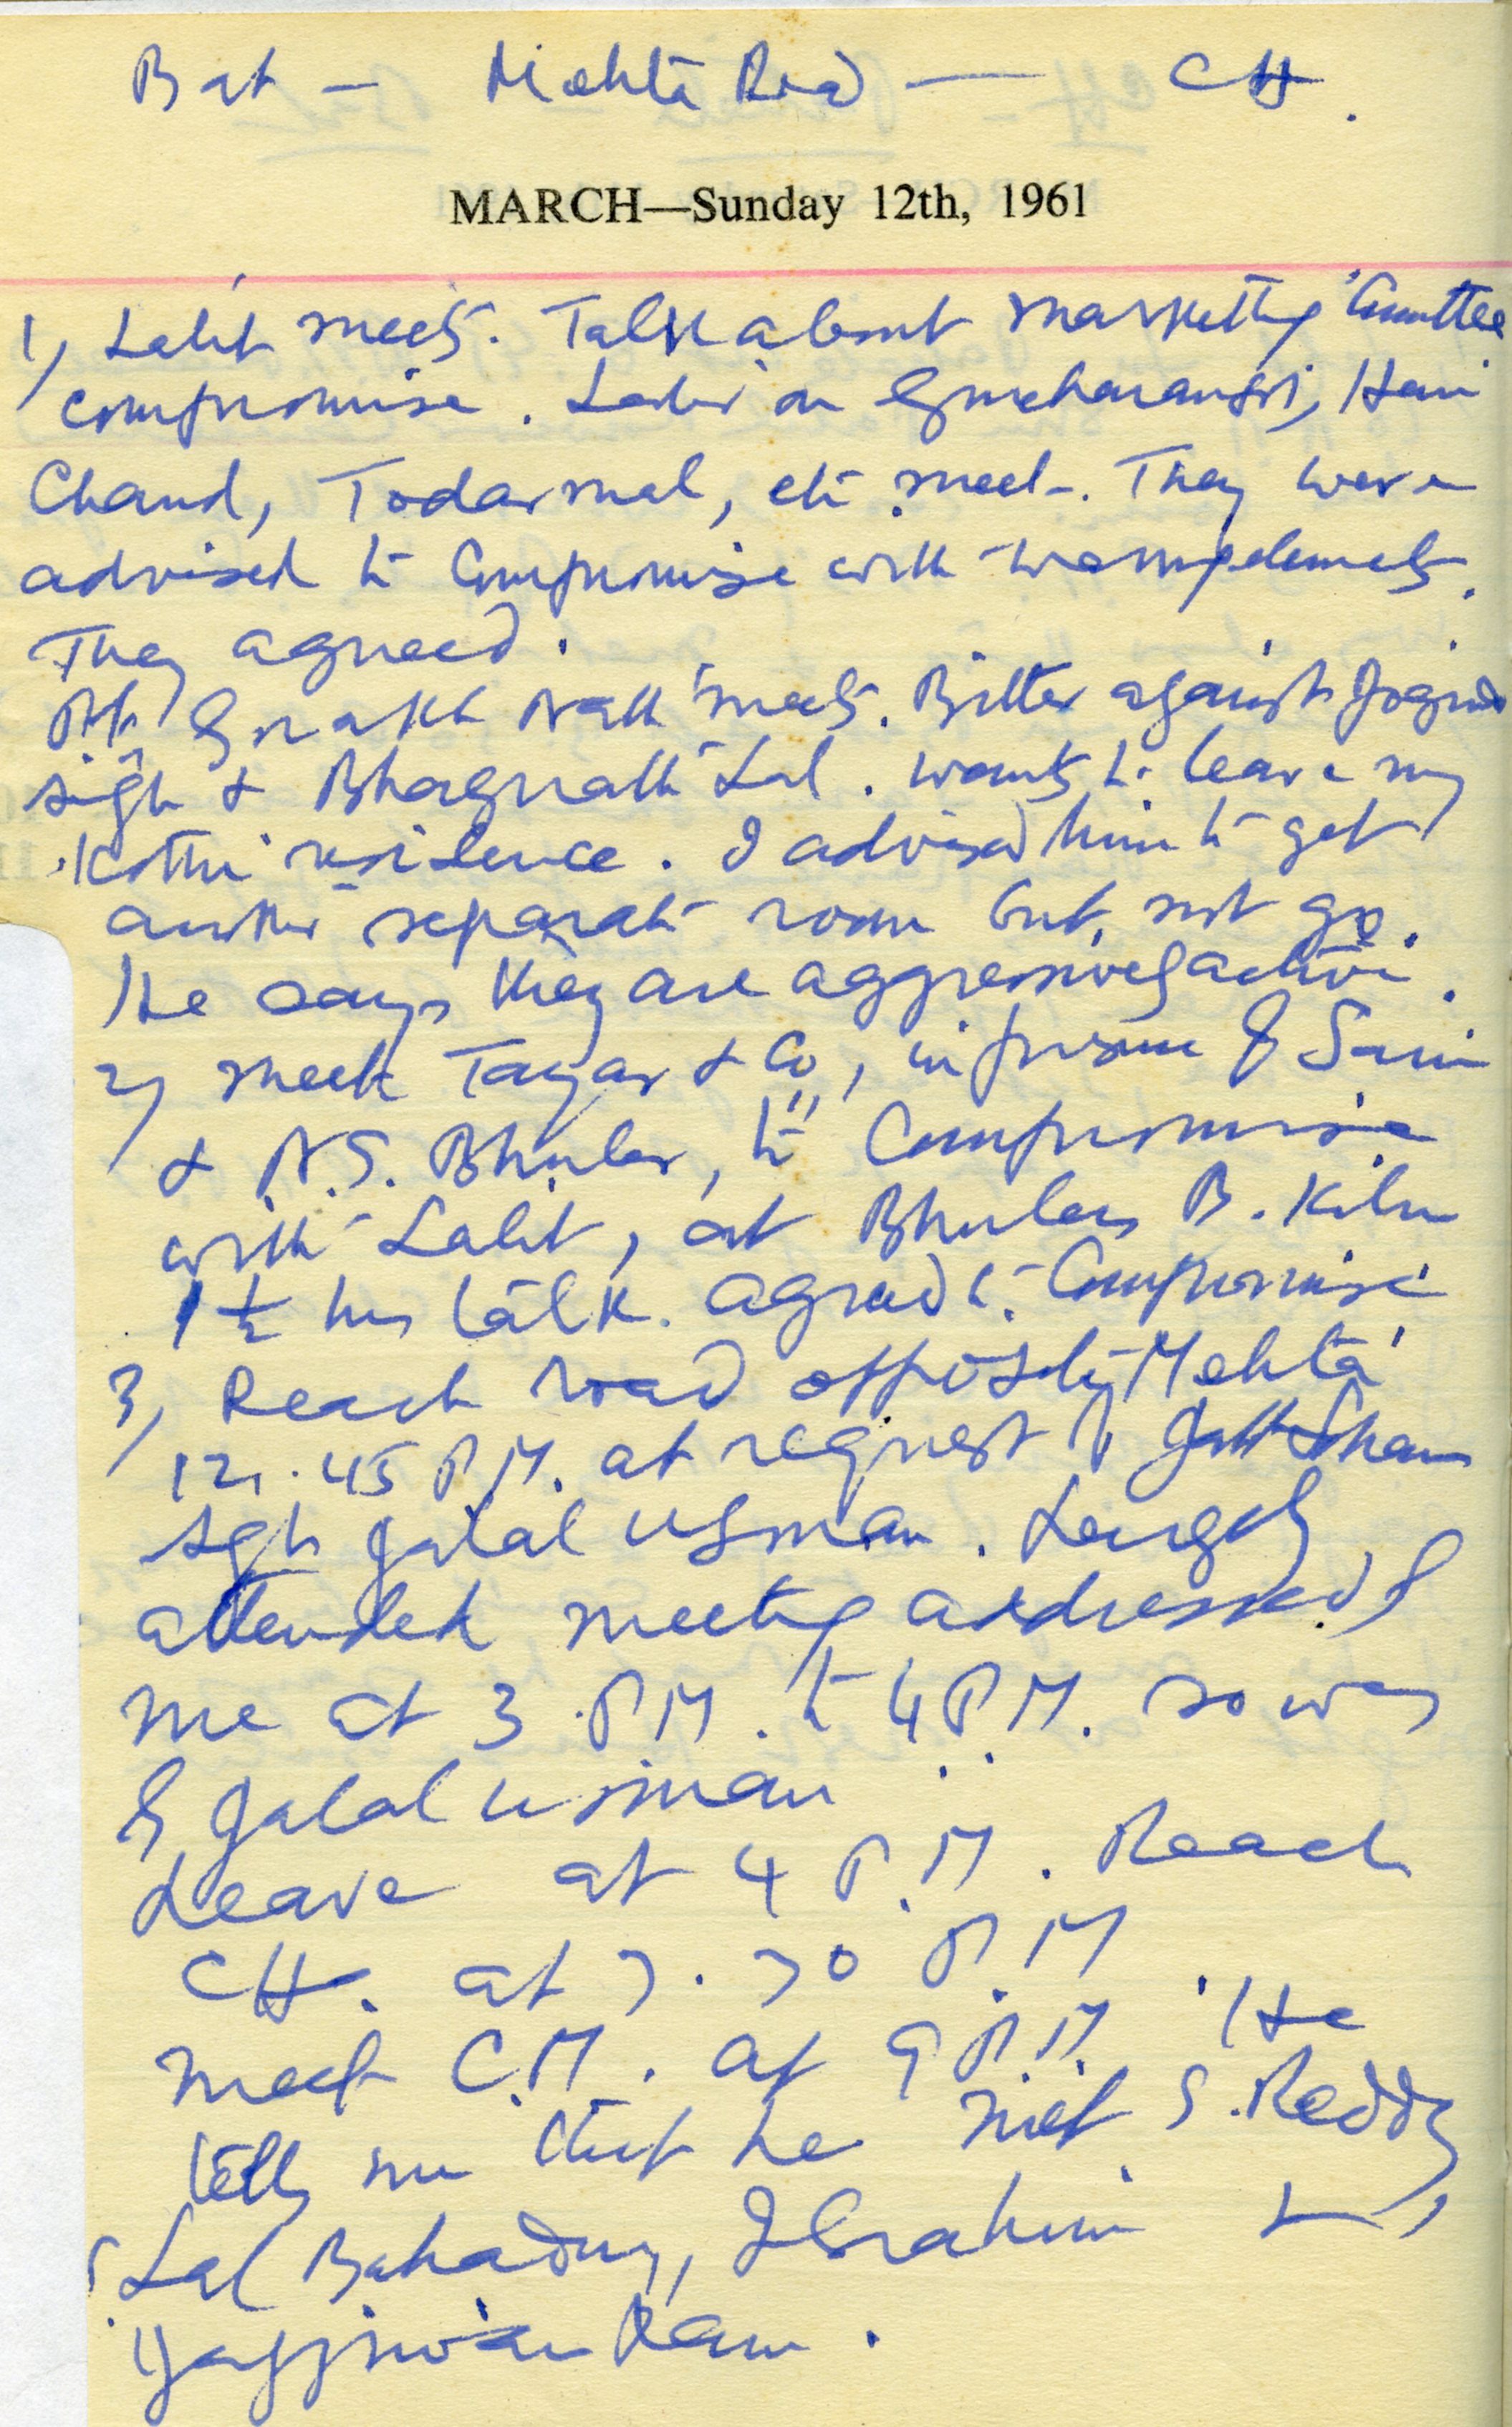 Bat — Mehta Road — CH.
MARCH—Sunday 12th, 1961
1) Lalit meets. Talk about marketting Committee
compromise. Later on Gurcharansi, Hari
Chand, Todarmal, etc meet. They were
advised to Compromise with wrong elements.
They agreed.
Gorakh Nath meets. Bitter against Jogind
singh & Bhagnath Lal. wants to leave my
Kothi residence. I advised him to get
another separate room but not go.
He says they are aggressively active.
2) meet Tayar & Co, in presence of Saini
& N.S. Bhuler, to Compromise
with Lalit, at Bhulers B. Kiln
1½ hrs talk. agreed to Compromise
3) Reach road opposite Mehta
12.45 P.M. at request of Sham
Sgh Jalal Usman. Largely
attended meeting addressed by
me at 3 P.M. to 4 P.M. so was
of Jalal usman
Leave at 4 P.M. Reach
CH. at 7.30 P.M
meet C.M. at 9 P.M. He
tells me that he met S. Reddy,
Lal Bahadur, Ibrahim &
Jagjiwan Ram.